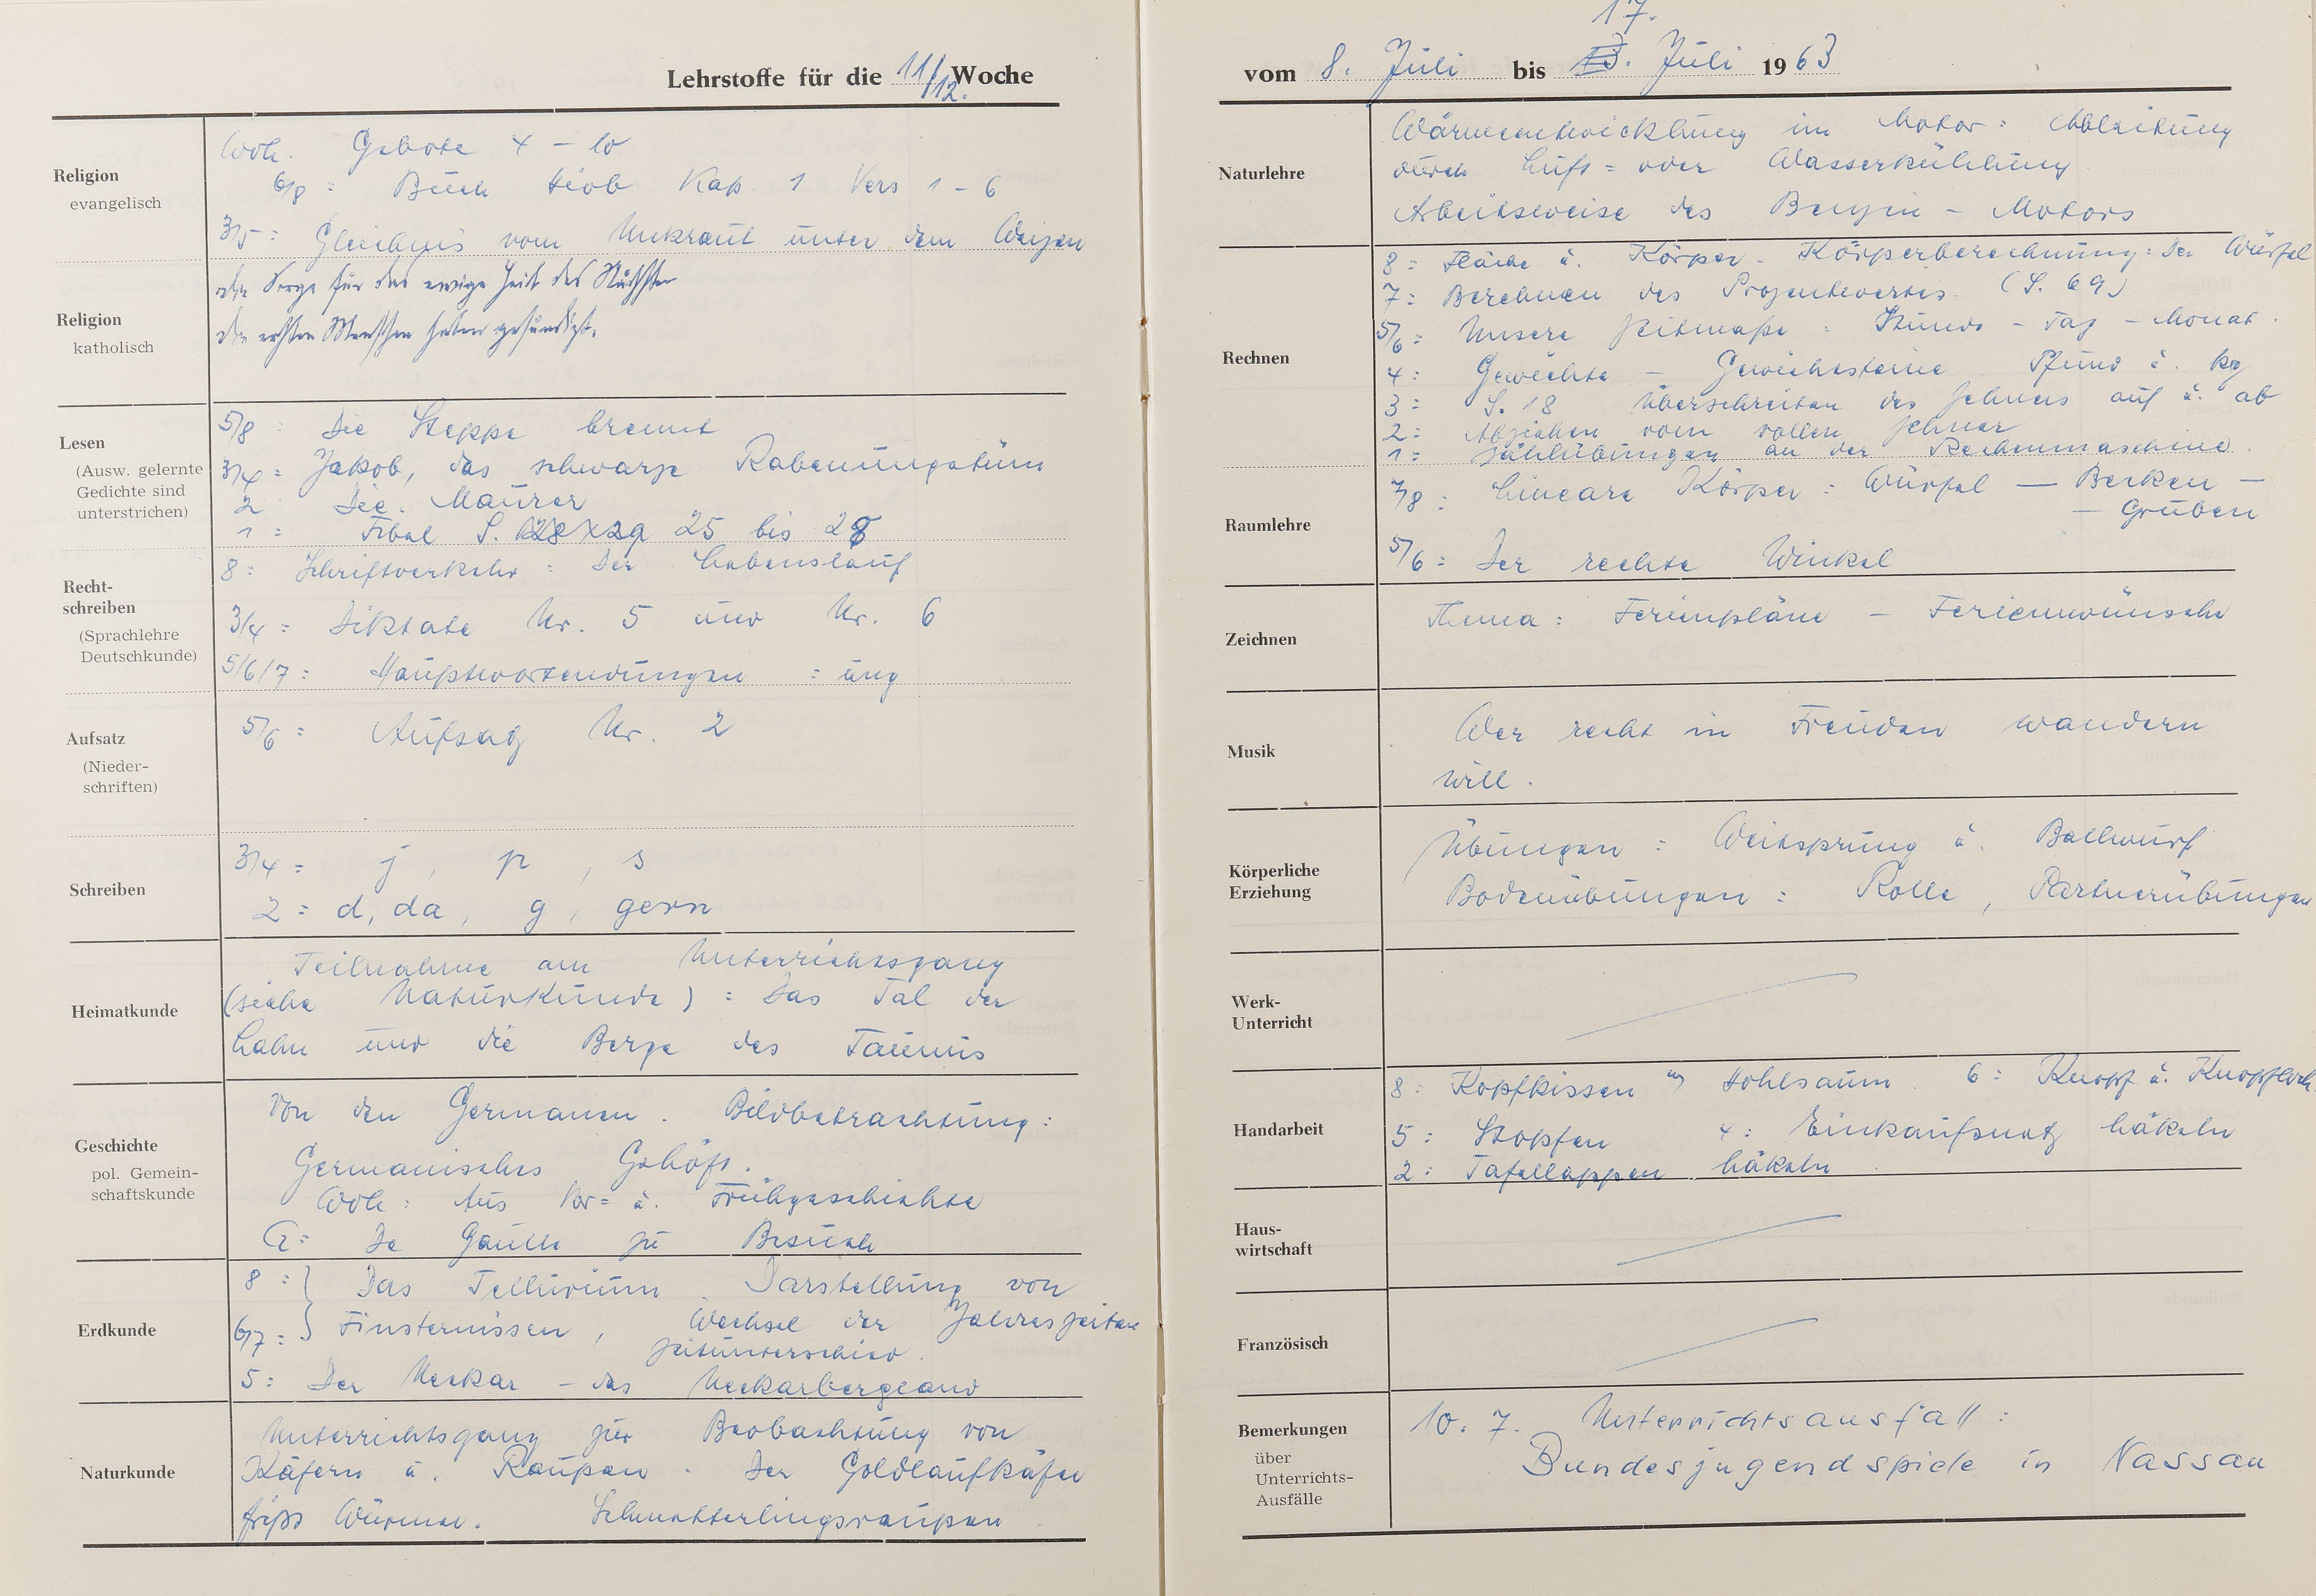 Lehrstoffe für die 11/12. Woche
Religion
evangelisch
Wdh. Gebote 4 – 10
6/8 : Buch Hiob Kap 1 Vers 1 – 6
3/5 : Gleichnis vom Unkraut unter dem Weizen
Religion
katholisch
die Sorge für das ewige Heil des Nächsten
die ersten Menschen haben gesündigt.
Lesen
(Ausw. gelernte
Gedichte sind
unterstrichen)
5/8 : Die Steppe brennt
3/4 = Jakob, das schwarze Rabenungetüm
2 Die Maurer
1 = Fibel S. 25 bis 28
Recht-
schreiben
(Sprachlehre
Deutschkunde)
8 : Schriftverkehr : Der Lebenslauf
3/4 = Diktate Nr. 5 und Nr. 6
5/6/7 : Hauptwortendungen : ung
Aufsatz
(Nieder-
schriften)
5/6 : Aufsatz Nr. 2
Schreiben
3/4 = j , p , s
2 = d, da , g , gern
Heimatkunde
Teilnahme am Unterrichtsgang
(siehe Naturkunde) : Das Tal der
Lahn und die Berge des Taunus
Geschichte
pol. Gemein-
schaftskunde
Von den Germanen . Bildbetrachtung :
Germanisches Gehöft .
Wdh : Aus Vor= u. Frühgeschichte
G= De Gaulle zu Besuch
Erdkunde
8 : } Das Tellurium . Darstellung von
6/7 = } Finsternissen , Wechsel der Jahreszeiten
Zeitunterschied .
5 : Der Neckar – das Neckarbergland
Naturkunde
Unterrichtsgang zur Beobachtung von
Käfern u. Raupen . Der Goldlaufkäfer
frißt Würmer . Schmetterlingsraupen
vom 8. Juli bis 17. 13. Juli 1963
Naturlehre
Wärmeentwicklung im Motor : Ableitung
durch Luft = oder Wasserkühlung
Arbeitsweise des Benzin – Motors
Rechnen
8 : Fläche u. Körper . Körperberechnung : Der Würfel
7 : Berechnen des Prozentwertes (S. 69)
5/6 : Unsere Zeitmaße : Stunde – Tag – Monat .
4 : Gewichte – Gewichtsteine Pfund u. kg
3 : S. 18 Überschreiten des Zehners auf u. ab
2 : Abziehen vom vollen Zehner
1 = Zählübungen an der Rechenmaschine
Raumlehre
7/8 : Lineare Körper : Würfel — Becken —
— Gruben
5/6 : Der rechte Winkel
Zeichnen
Thema : Ferienpläne – Ferienwünsche
Musik
Wer recht in Freuden wandern
will .
Körperliche
Erziehung
Übungen : Weitsprung u. Ballwurf
Bodenübungen : Rolle , Partnerübungen
Werk-
Unterricht
Handarbeit
8 : Kopfkissen m Hohlsaum 6 : Knopf u. Knopfloch
5 : Stopfen 4 : Einkaufsnetz häkeln
2 : Tafellappen häkeln
Haus-
wirtschaft
Französisch
Bemerkungen
über
Unterrichts-
Ausfälle
10. 7. Unterrichtsausfall :
Bundesjugendspiele in Nassau